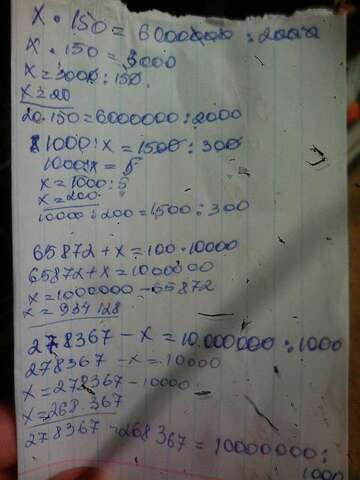 x · 150 = 6000000 : 2000
x · 150 = 3000
x = 3000 : 150
x = 20
20 · 150 = 6000000 : 2000
1000 : x = 1500 : 300
1000 : x = 5
x = 1000 : 5
x = 200
1000 : 200 = 1500 : 300
65872 + x = 100 · 10000
65872 + x = 1000000
x = 1000000 - 65872
x = 934 128
278367 - x = 10.000000 : 1000
278367 - x = 10000
x = 278367 - 10000
x = 268.367
278367 - 268367 = 10000000 :
1000